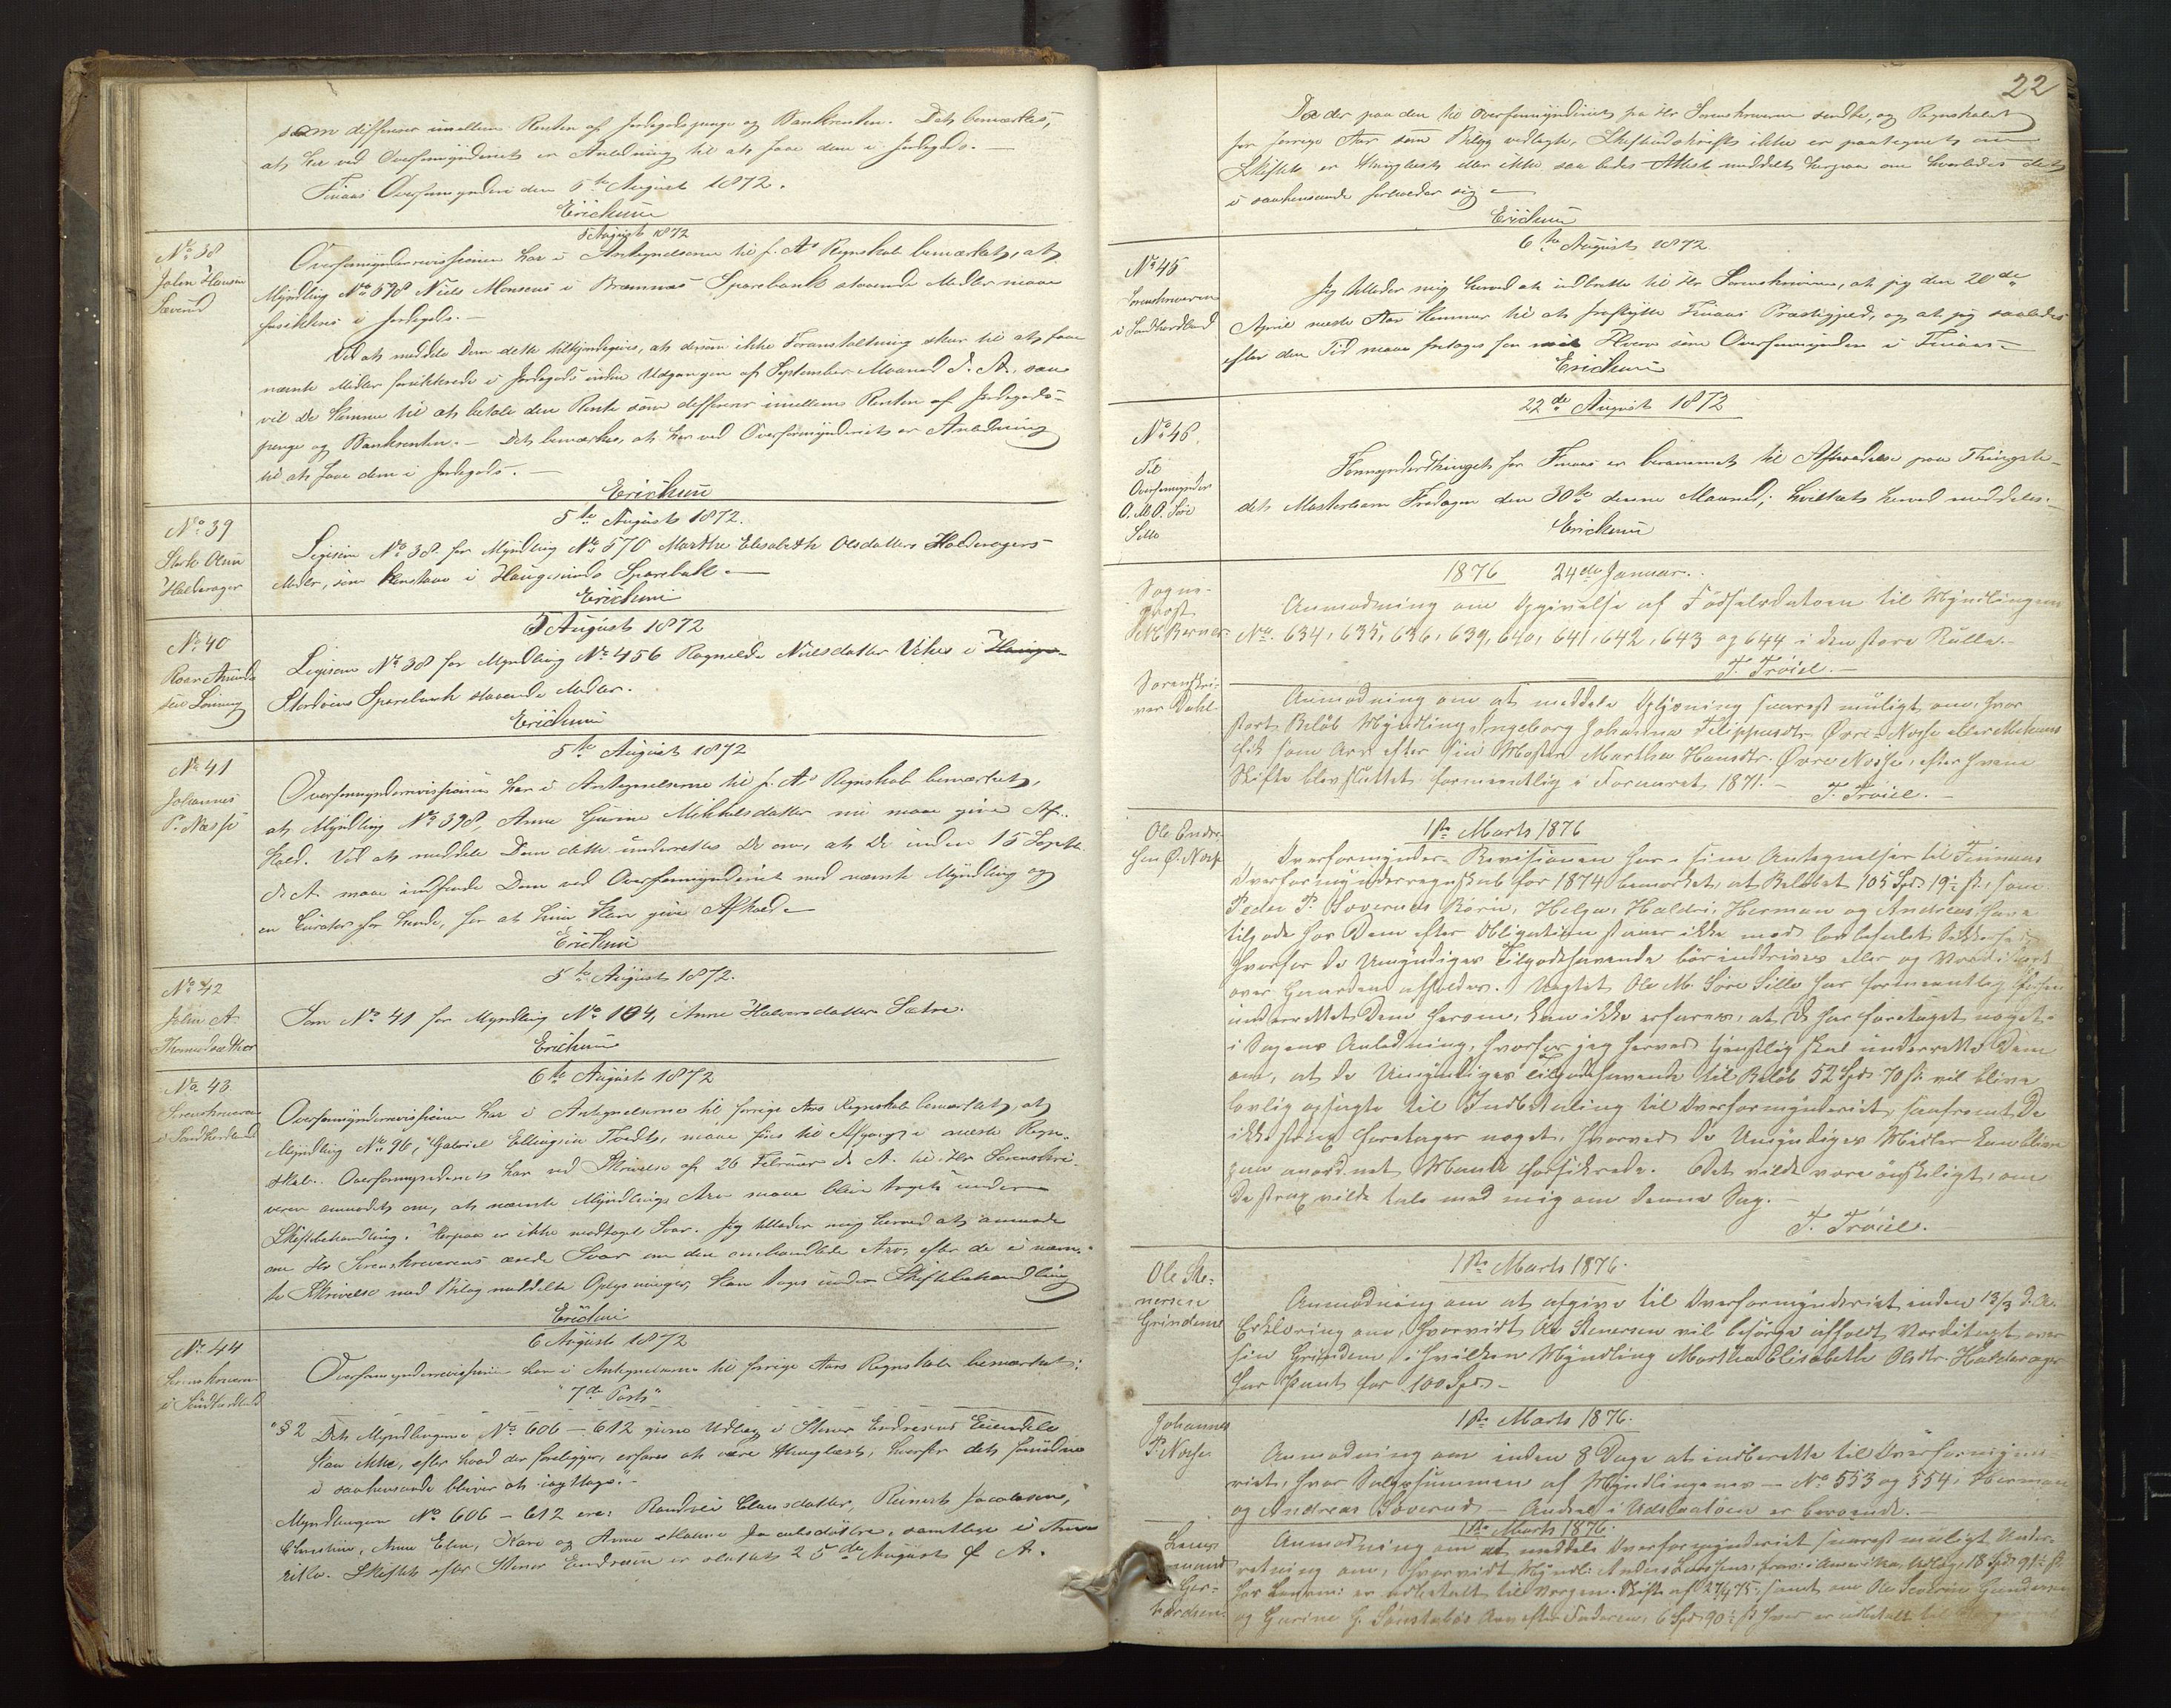 som differerer imellem Renten af Jordegodspenge og Bankrenten. Det bemærkes,
at her ved Overformynderiet er Anledning til at faae dem i Jordegods.
Finaas Overformynderi den 5te August 1872.
Erichsen
5 August 1872
No 38
Johan Hansen
Overformynderrevisionen har i Antegnelserne til f. A's Regnskab bemærket, at
Myndling No 598 Niels Monsens i Bræmnæs Sparebank staaende Midler maae
forsikkres i Jordegods.
Ved at meddele Dem dette tilkjendegives, at dersom ikke Foranstaltning sker til at faae
nævnte Midler forsikkrede i Jordegods inden Udgangen af September Maaned d. A. saa
vil De komme til at betale den Rente som differerer imellem Renten af Jordegods-
penge og Bankrenten. – Det bemærkes, at her ved Overformynderiet er Anledning
til at faae dem i Jordegods. –
Erichsen
No 39
Halderager
5te August 1872.
Ligesom No 38 for Myndling No 570 Marthe Elisabeth Olsdatter Halderagers
Midler, som henstaae i Haugesunds Sparebank –
Erichsen
No 40
5 August 1872
Ligesom No 38 for Myndling No 456 Ragnilde Nielsdatter Vikes i Hauge-
Stordøens Sparebank staaende Midler.
Erichsen
No 41
Johannes
P. Næsse
5te August 1872
Overformynderrevisionen har i Antegnelserne til f. A's Regnskab bemærket,
at Myndling No 398, Anne Gurine Mikkelsdatter nu maae give Af-
kald. Ved at meddele Dem dette underrettes De om, at De inden 15 Septb
d. A. maae indfinde Dem ved Overformynderiet med nævnte Myndling og
en Curator for hende, for at hun kan give Afkald –
Erichsen
No 42
John A.
5te August 1872.
Som No 41 for Myndling No 104, Anne Halversdatter Sætre.
Erichsen
No 43
Sorenskriveren
i Søndhordland
6te August 1872
Overformynderrevisionen har i Antegnelserne til forrige Aars Regnskab bemærket, at
Myndling No 96, Gabriel Ellingsen Tvedts, maae føres til Afgang i næste Regn-
skab. Overformynderiet har ved Skrivelse af 26 Februar d. A. til Hr Sorenskri-
veren anmodet om, at nævnte Myndlings Arv maae blive taget under
Skiftebehandling. Herpaa er ikke modtaget Svar. Jeg tillader mig herved at anmode
om Hr Sorenskriverens ærede Svar om den omhandlede Arv, efter de i nævn-
te Skrivelse med Bilag meddelte Oplysninger, kan tages under Skiftebehandling
Erichsen
No 44
Sorenskriveren
i Søndhordland
6 August 1872
Overformynderrevisionen har i Antegnelserne til forrige Aars Regnskab bemærket:
"7de Post"
"§ 2 Det Myndlingerne No 606 – 612 givne Udlæg i Stener Endresens Eiendele
kan ikke, efter hvad der foreligger, erfares at være thinglæst, hvorfor det fornødne
i saahenseende bliver at iagttage." –
Myndlingerne No 606 – 612 ere: Randvei Clausdatter, Reinert Jacobsen,
Christine, Anne Elen, Kari og Anne Malene Jacobsdøttre, samtlige i Ame-
rika. Skiftet efter Stener Endresen er sluttet 25de August f. A.
22
Da der paa den til Overformynderiet fra Hr Sorenskriveren sendte, og Regnskabet
for forrige Aar som Bilag vedlagte, Skifteudskrift ikke er paategnet om
Skiftet er thinglæst eller ikke saa bedes Attest meddelt herpaa om hvorledes det
i saahenseende forholder sig –
Erichsen
No 45
Sorenskriveren
i Søndhordland
6te August 1872
Jeg tillader mig herved at indberette til Hr Sorenskriveren, at jeg den 20de
April næste Aar kommer til at fraflytte Finaas Præstegjeld, og at jeg saaledes
efter den Tid maae fritages for mit Hverv som Overformynder i Finaas –
Erichsen
No 46.
Til
Overformynder
O. M. O. Søre
Lille
22de August 1872
Formynderthinget for Finaas er berammet til Afholdelse paa Thingste-
det Mosterhavn Fredagen den 30te denne Maaned; hvilket herved meddeles. –
Erichsen
Sogne-
præst
Berner
1876 24de Januar.
Anmodning om Opgivelse af Fødselsdatoen til Myndlingerne
No. 634, 635, 636, 639, 640, 641, 642, 643 og 644 i den store Rulle. –
T. Trøiel. –
Sorenskri-
ver Dahl
Anmodning om at meddele Oplysning snarest muligt om, hvor
stort Beløb Myndling Ingeborg Johanna Filippusdtr. Øvre Næsse eller
fik som Arv efter sin Moster Martha Hansdtr. Øvre Næsse, efter hvem
Skifte blev sluttet formeentlig i Foraaret 1871. –
T. Trøiel. –
Ole Endre-
sen Ø. Næsse
1ste Marts 1876
Overformynder-Revisionen har i sine Antegnelser til Finnaas
Overformynderregnskab for 1874 bemærket, at Beløbet 105 Spd. 19½ ß., som
Peder P. Søvereids Børn, Helga, Haldri, Herman og Andreas have
tilgode hos Dem efter Obligation staaer ikke med lovbefalet Sikkerhed
hvorfor de Umyndiges Tilgodehavende bør inddrives eller og Værditaxt
over Gaarden afholdes. Uagtet Ole M. Søre Lille har formeentlig
underrettet Dem herom, kan ikke erfares, at De har foretaget noget
i Sagens Anledning, hvorfor jeg herved tjenstlig skal underrette Dem
om, at de Umyndiges Tilgodehavende til Beløb 52 Spd. 70 ß. vil blive
lovlig opsagte til Indbetaling til Overformynderiet, saafremt De
ikke strax foretager noget, hvorved de Umyndiges Midler kan blive
paa anordnet Maade forsikrede. Det vilde være ønskeligt, om
De strax vilde tale med mig om denne Sag. –
T. Trøiel. –
Ole Ste-
nersen
Grindem
1ste Marts 1876.
Anmodning om at afgive til Overformynderiet inden 13/3 d. A.
Erklæring om, hvorvidt Ole Stenersen vil besørge afholdt Værditaxt over
sin Grindem i hvilken Myndling Martha Elisabeth Olsdtr. Halderager
har Pant for 100 Spd. –
Johannes
P. Næsse
1ste Marts 1876.
Anmodning om inden 8 Dage at indberette til Overformynde-
riet, hvor Salgssummen af Myndlingernes – No 553 og 554, Herman
og Andreas Søvereid – Andeel i Udskaaten er beroende. –
Lens-
mand
Ger-
hardsen.
1ste Marts 1876.
Anmodning om at meddele Overformynderiet snarest muligt Under-
retning om, hvorvidt Myndl. Anders Larssens, frav: i Amerika, Udlæg 18 Spd. 91½ ß.
er udbetalt til Vergen. Skifte af 27/4 75. samt om Ole Severin Gundersen
og Gurine G. Sønstabøs Arv efter Faderen, 6 Spd. 90½ ß hver er udbetalt til